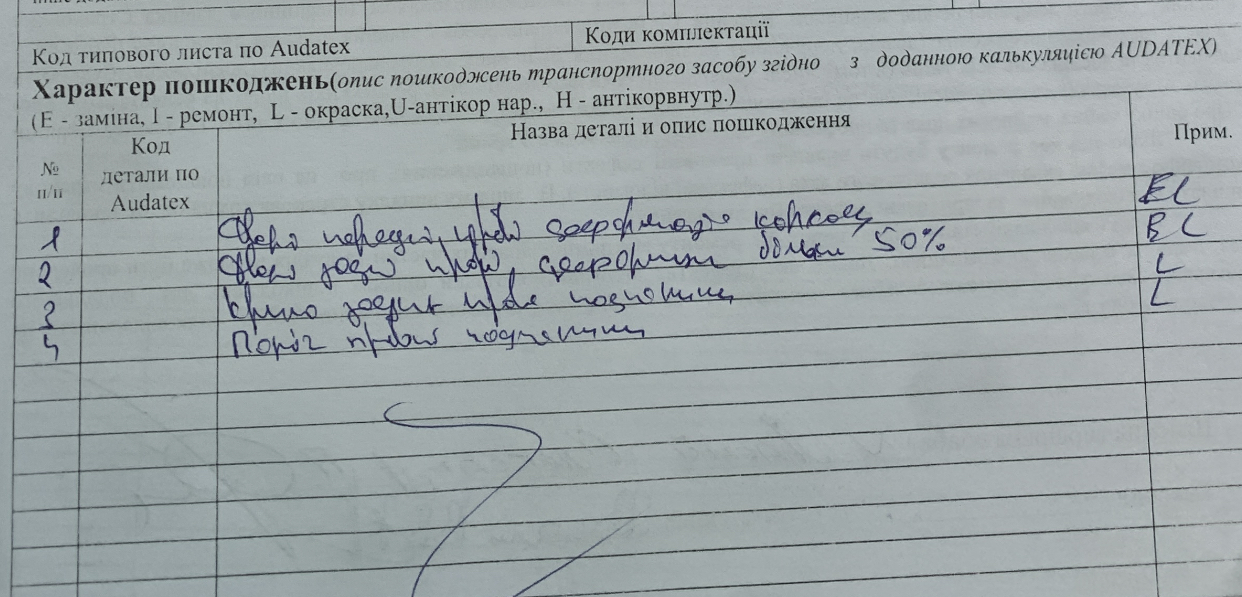 Код типового листа по Audatex
Коди комплектації
Характер пошкоджень(опис пошкоджень транспортного засобу згідно з доданною калькуляцією AUDATEX)
(E - заміна, I - ремонт, L - окраска,U-антікор нар., H - антікорвнутр.)
№ п/п
Код детали по Audatex
Назва деталі и опис пошкодження
Прим.
1 Двері передні, праві деформація каркасу EL
2 Двері задні праві, деформ більше 50% EL
3 Крило заднє праве L
4 Поріг правий L